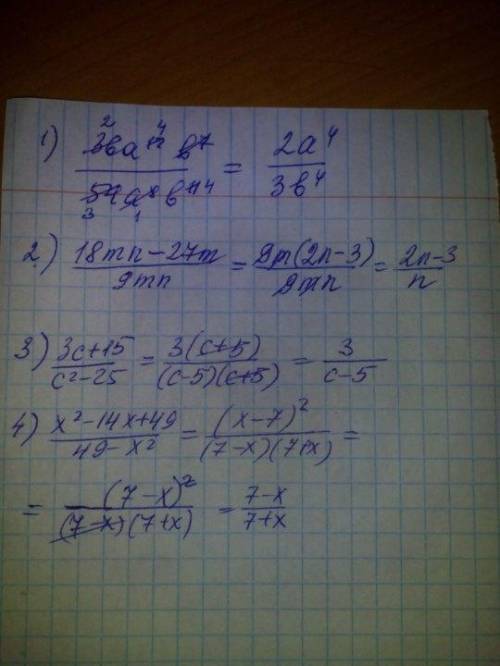 1) 36a¹² b⁷ / 54a⁸ b¹¹ = 2a⁴ / 3b⁴
2) 18mn − 27m / 9mn = 9m(2n−3) / 9mn = 2n−3 / n
3) 3c+15 / c²−25 = 3(c+5) / (c−5)(c+5) = 3 / c−5
4) x²−14x+49 / 49−x² = (x−7)² / (7−x)(7+x) =
= (7−x)² / (7−x)(7+x) = 7−x / 7+x